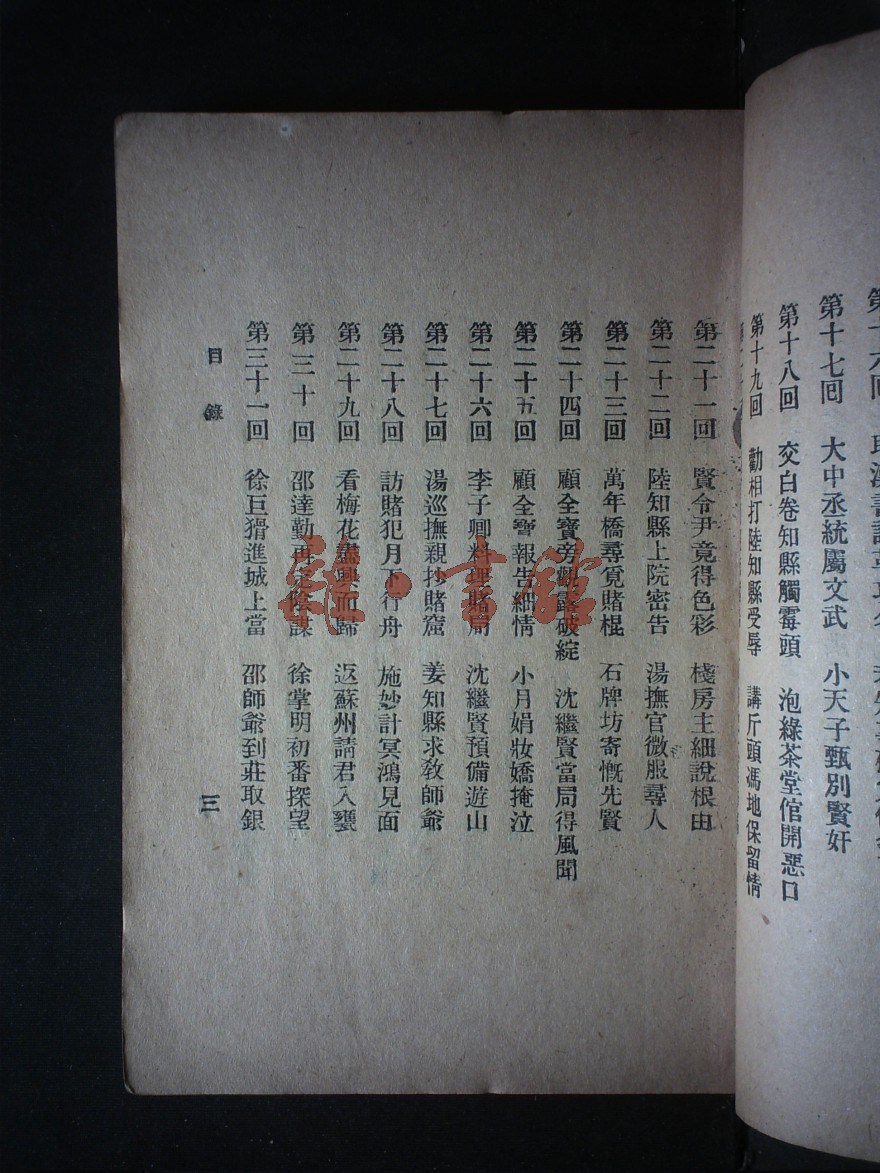 第十七回　大中丞統屬文武　小天子甄別賢奸
第十八回　交白卷知縣觸霉頭　泡綠茶堂倌開惡口
第十九回　勸相打陸知縣受辱　講斤頭馮地保留情
第二十一回　賢令尹竟得色彩　棧房主細說根由
第二十二回　陸知縣上院密告　湯撫官微服尋人
第二十三回　萬年橋尋覓賭棍　石牌坊寄慨先賢
第二十四回　顧全寶旁觀露破綻　沈繼賢當局得風聞
第二十五回　顧全寶報告細情　小月娟妝嬌掩泣
第二十六回　李子卿料理賭局　沈繼賢預備遊山
第二十七回　湯巡撫親抄賭窟　姜知縣求教師爺
第二十八回　訪賭犯月下行舟　施妙計冥鴻見面
第二十九回　看梅花盡興而歸　返蘇州請君入甕
第三十回　邵達勤再定陰謀　徐掌明初番探望
第三十一回　徐巨猾進城上當　邵師爺到莊取銀
目錄
三
雜·書館